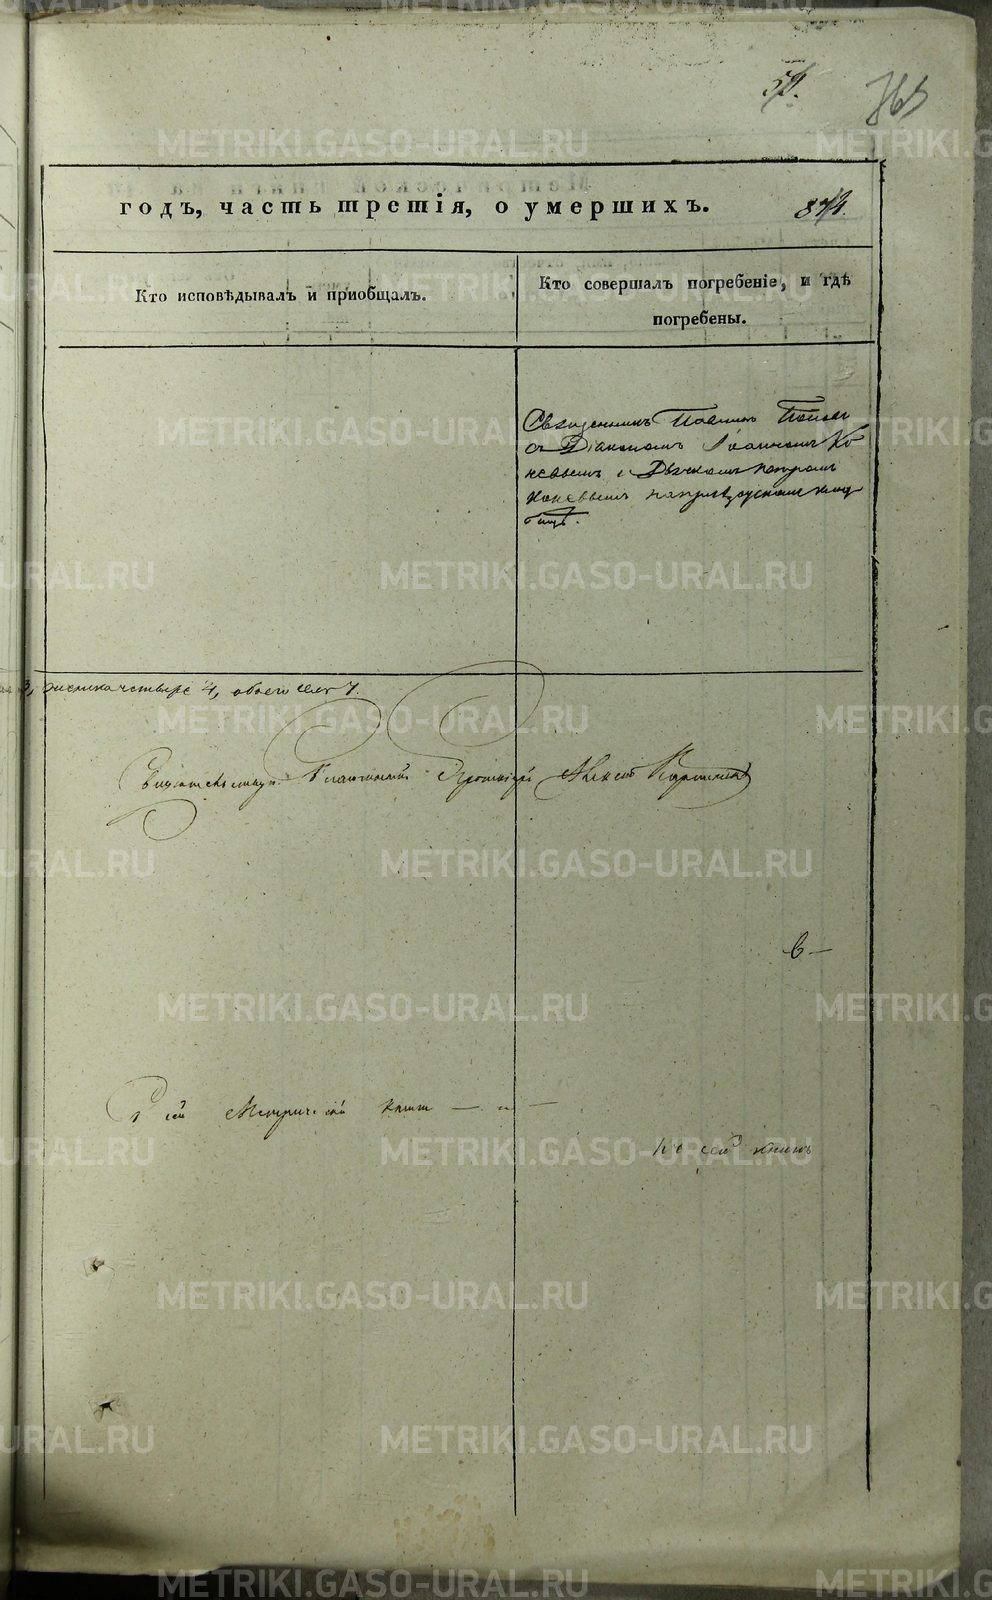 годъ, часть третія, о умершихъ.
Кто исповѣдывалъ и приобщалъ.
Кто совершалъ погребеніе, и гдѣ
погребены.
Священникъ Павелъ Поповъ
съ Діакономъ Іоанномъ Ко
невымъ и Дьячкомъ Петромъ
Коневымъ на приходскомъ клад
бищѣ.
3, женска четыре 4, обоего семь 7.
Благочинный Протоіерей Алексій
Въ сей Метрической книгѣ
По сей книгѣ
METRIKI.GASO-URAL.RU